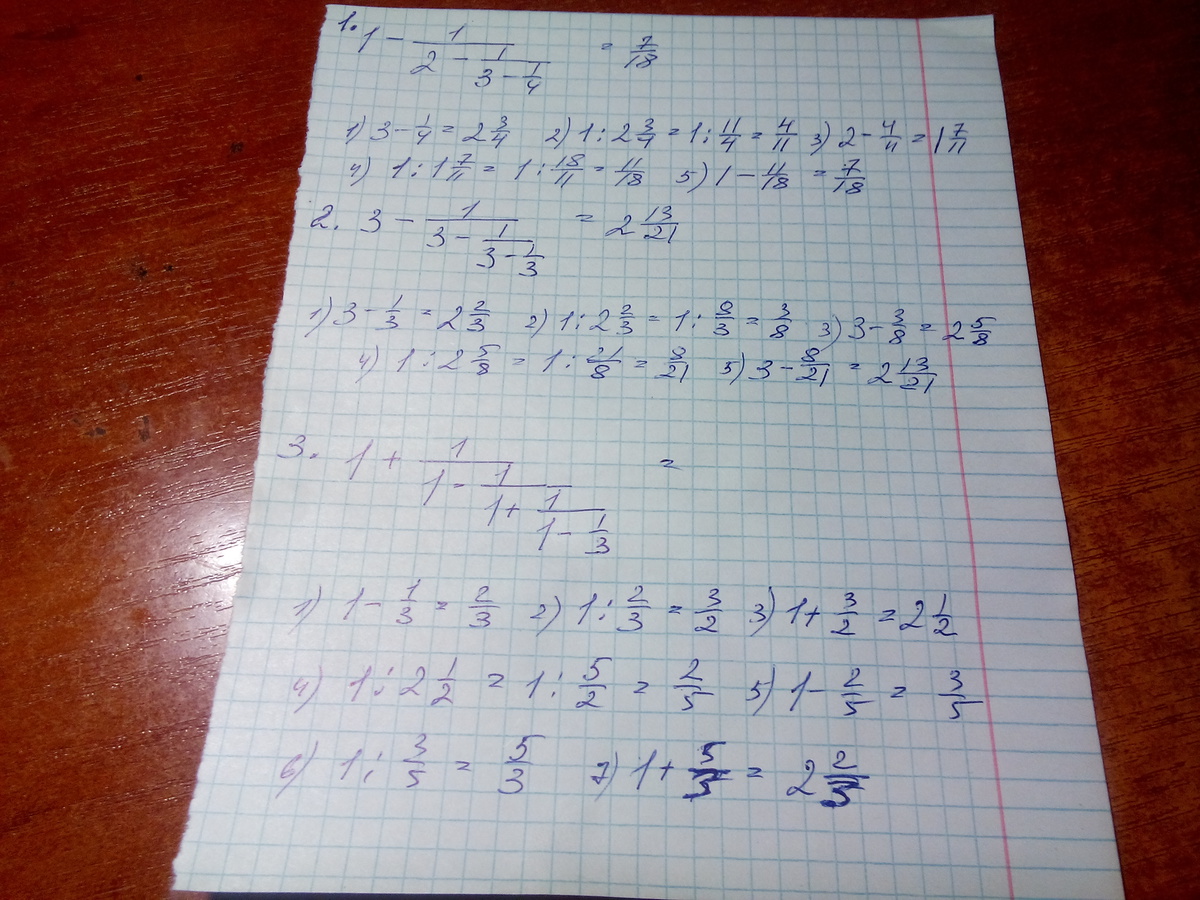 1. 1 - 1/(2 - 1/(3 - 1/4)) = 7/18
1) 3 - 1/4 = 2 3/4 2) 1 : 2 3/4 = 1 : 11/4 = 4/11 3) 2 - 4/11 = 1 7/11
4) 1 : 1 7/11 = 1 : 18/11 = 11/18 5) 1 - 11/18 = 7/18
2. 3 - 1/(3 - 1/(3 - 1/3)) = 2 13/21
1) 3 - 1/3 = 2 2/3 2) 1 : 2 2/3 = 1 : 8/3 = 3/8 3) 3 - 3/8 = 2 5/8
4) 1 : 2 5/8 = 1 : 21/8 = 8/21 5) 3 - 8/21 = 2 13/21
3. 1 + 1/(1 - 1/(1 + 1/(1 - 1/3))) =
1) 1 - 1/3 = 2/3 2) 1 : 2/3 = 3/2 3) 1 + 3/2 = 2 1/2
4) 1 : 2 1/2 = 1 : 5/2 = 2/5 5) 1 - 2/5 = 3/5
6) 1 : 3/5 = 5/3 7) 1 + 5/3 = 2 2/3